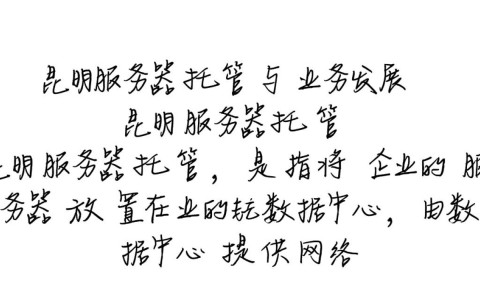 昆明服务器托管与业务发展
昆明服务器托管
昆明服务器托管，是指将 企业的 服
务器 放 置在业的耘数据中心，由数
据中心 提供网络